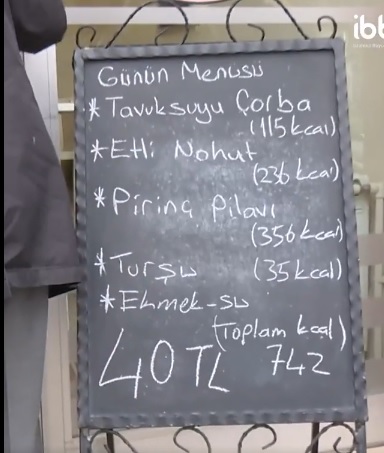 ibb
Günün Menüsü
* Tavuksuyu Çorba
(115 kcal)
* Etli Nohut
(236 kcal)
* Pirinç Pilavı
(356 kcal)
* Turşu (35 kcal)
* Ekmek-su
(Toplam kcal)
40 TL 742